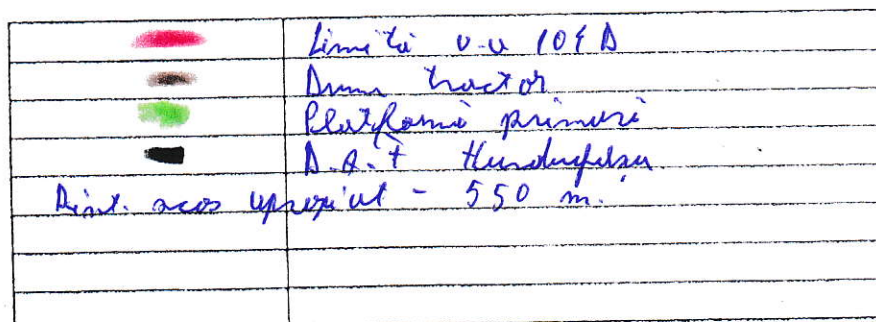 Limită u.a 104 D
Drum tractor
Platformă primară
D.a.f
Dist. scos apropiat - 550 m.